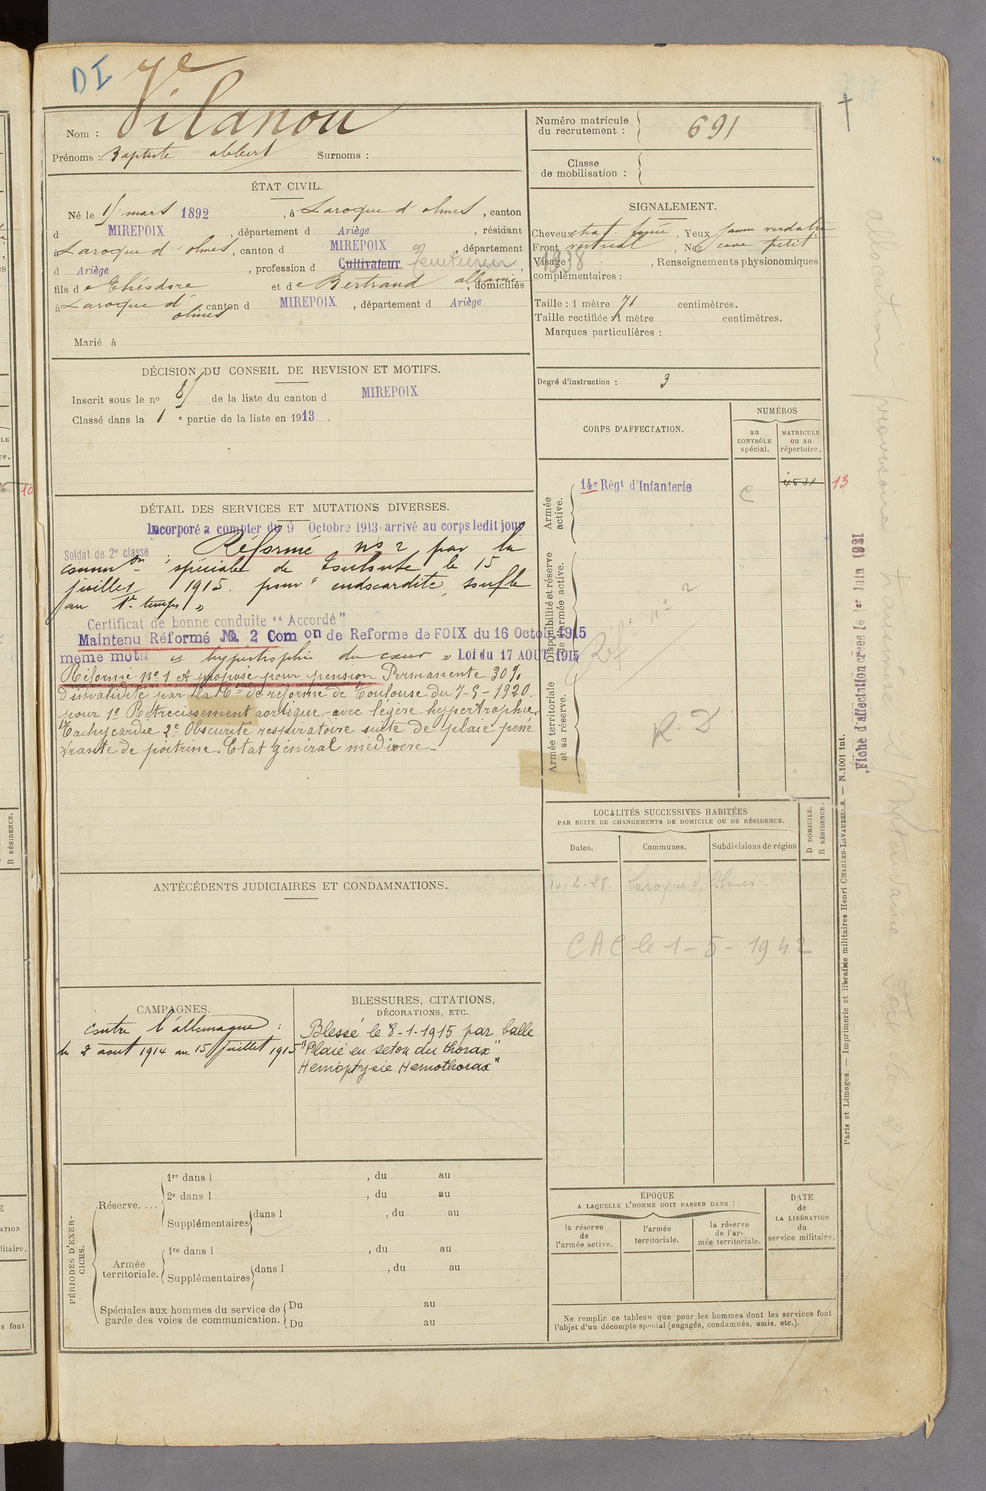 DI
Nom : Vilanou
Prénoms : Baptiste albert Surnoms :
Numéro matricule du recrutement : 691
Classe de mobilisation :
ÉTAT CIVIL.
Né le 15 mars 1892, à Laroque d'olmes, canton
d MIREPOIX, département d Ariège, résidant
Laroque d'olmes, canton d MIREPOIX, département
d Ariège, profession d Cultivateur
fils de Théodore et de Bertrand albanie, domiciliés
à Laroque d'olmes canton d MIREPOIX, département d Ariège
Marié à
SIGNALEMENT.
Cheveux chat foncé, Yeux jaune verdatre
Front vertical, Nez cave petit
Visage 1938, Renseignements physionomiques
complémentaires :
Taille : 1 mètre 71 centimètres.
Taille rectifiée 1 mètre centimètres.
Marques particulières :
Degré d'instruction : 3
DÉCISION DU CONSEIL DE REVISION ET MOTIFS.
Inscrit sous le nº de la liste du canton d MIREPOIX
Classé dans la 1e partie de la liste en 1913
DÉTAIL DES SERVICES ET MUTATIONS DIVERSES.
Incorporé a compter du 9 Octobre 1913 arrivé au corps ledit jour
Soldat de 2e classe. Réformé nº 2 par la
common spéciale de Toulouse le 15
juillet 1915. pour "endocardite, souffle
au 1er temps"
Certificat de bonne conduite "Accordé"
Maintenu Réformé No. 2 Com on de Reforme de FOIX du 16 Octob 1915
meme motif "hypertrophie du coeur" Loi du 17 AOUT 1915
Réformé Nº 1 et proposé pour pension Permanente 30%
d'invalidité par la Con de réforme de Toulouse du 7-5-1920.
pour 1º Rétrecissement aortique avec légère hypertrophie
Tachycardie 2º Obscurité respiratoire suite de plaie péné
trante de poitrine. Etat général médiocre.
CORPS D'AFFECTATION.
NUMÉROS
au CONTRÔLE spécial.
MATRICULE ou au répertoire.
Armée active.
14e Régt d'Infanterie
C
4631
13
Disponibilité et réserve de l'armée active.
Réf. nº 2
Armée territoriale et sa réserve.
R. D
LOCALITÉS SUCCESSIVES HABITÉES
PAR SUITE DE CHANGEMENTS DE DOMICILE OU DE RÉSIDENCE.
Dates. Communes. Subdivisions de région
D DOMICILE.
R RÉSIDENCE.
Laroque d'Olmes
CAC le 1-5-1942
ANTÉCÉDENTS JUDICIAIRES ET CONDAMNATIONS.
CAMPAGNES.
Contre l'allemagne :
du 2 aout 1914 au 15 juillet 1915
BLESSURES, CITATIONS,
DÉCORATIONS, ETC.
Blessé le 8-1-1915 par balle
"Plaie en seton du thorax"
Hemoptysie Hemothorax"
PÉRIODES D'EXERCICES.
Réserve.... 1re dans l , du au
2e dans l , du au
Supplémentaires dans l , du au
Armée territoriale. 1re dans l , du au
Supplémentaires dans l , du au
Spéciales aux hommes du service de garde des voies de communication. Du au
Du au
ÉPOQUE
A LAQUELLE L'HOMME DOIT PASSER DANS :
la réserve de l'armée active.
l'armée territoriale.
la réserve de l'armée territoriale.
DATE de LA LIBÉRATION du service militaire.
Ne remplir ce tableau que pour les hommes dont les services font
l'objet d'un décompte spécial (engagés, condamnés, omis, etc.).
Paris et Limoges. — Imprimerie et librairie militaires Henri CHARLES-LAVAUZELLE. — N. 1001 int.
Fiche d'affectation créée le 1er Juin 1921
allocation provisoire